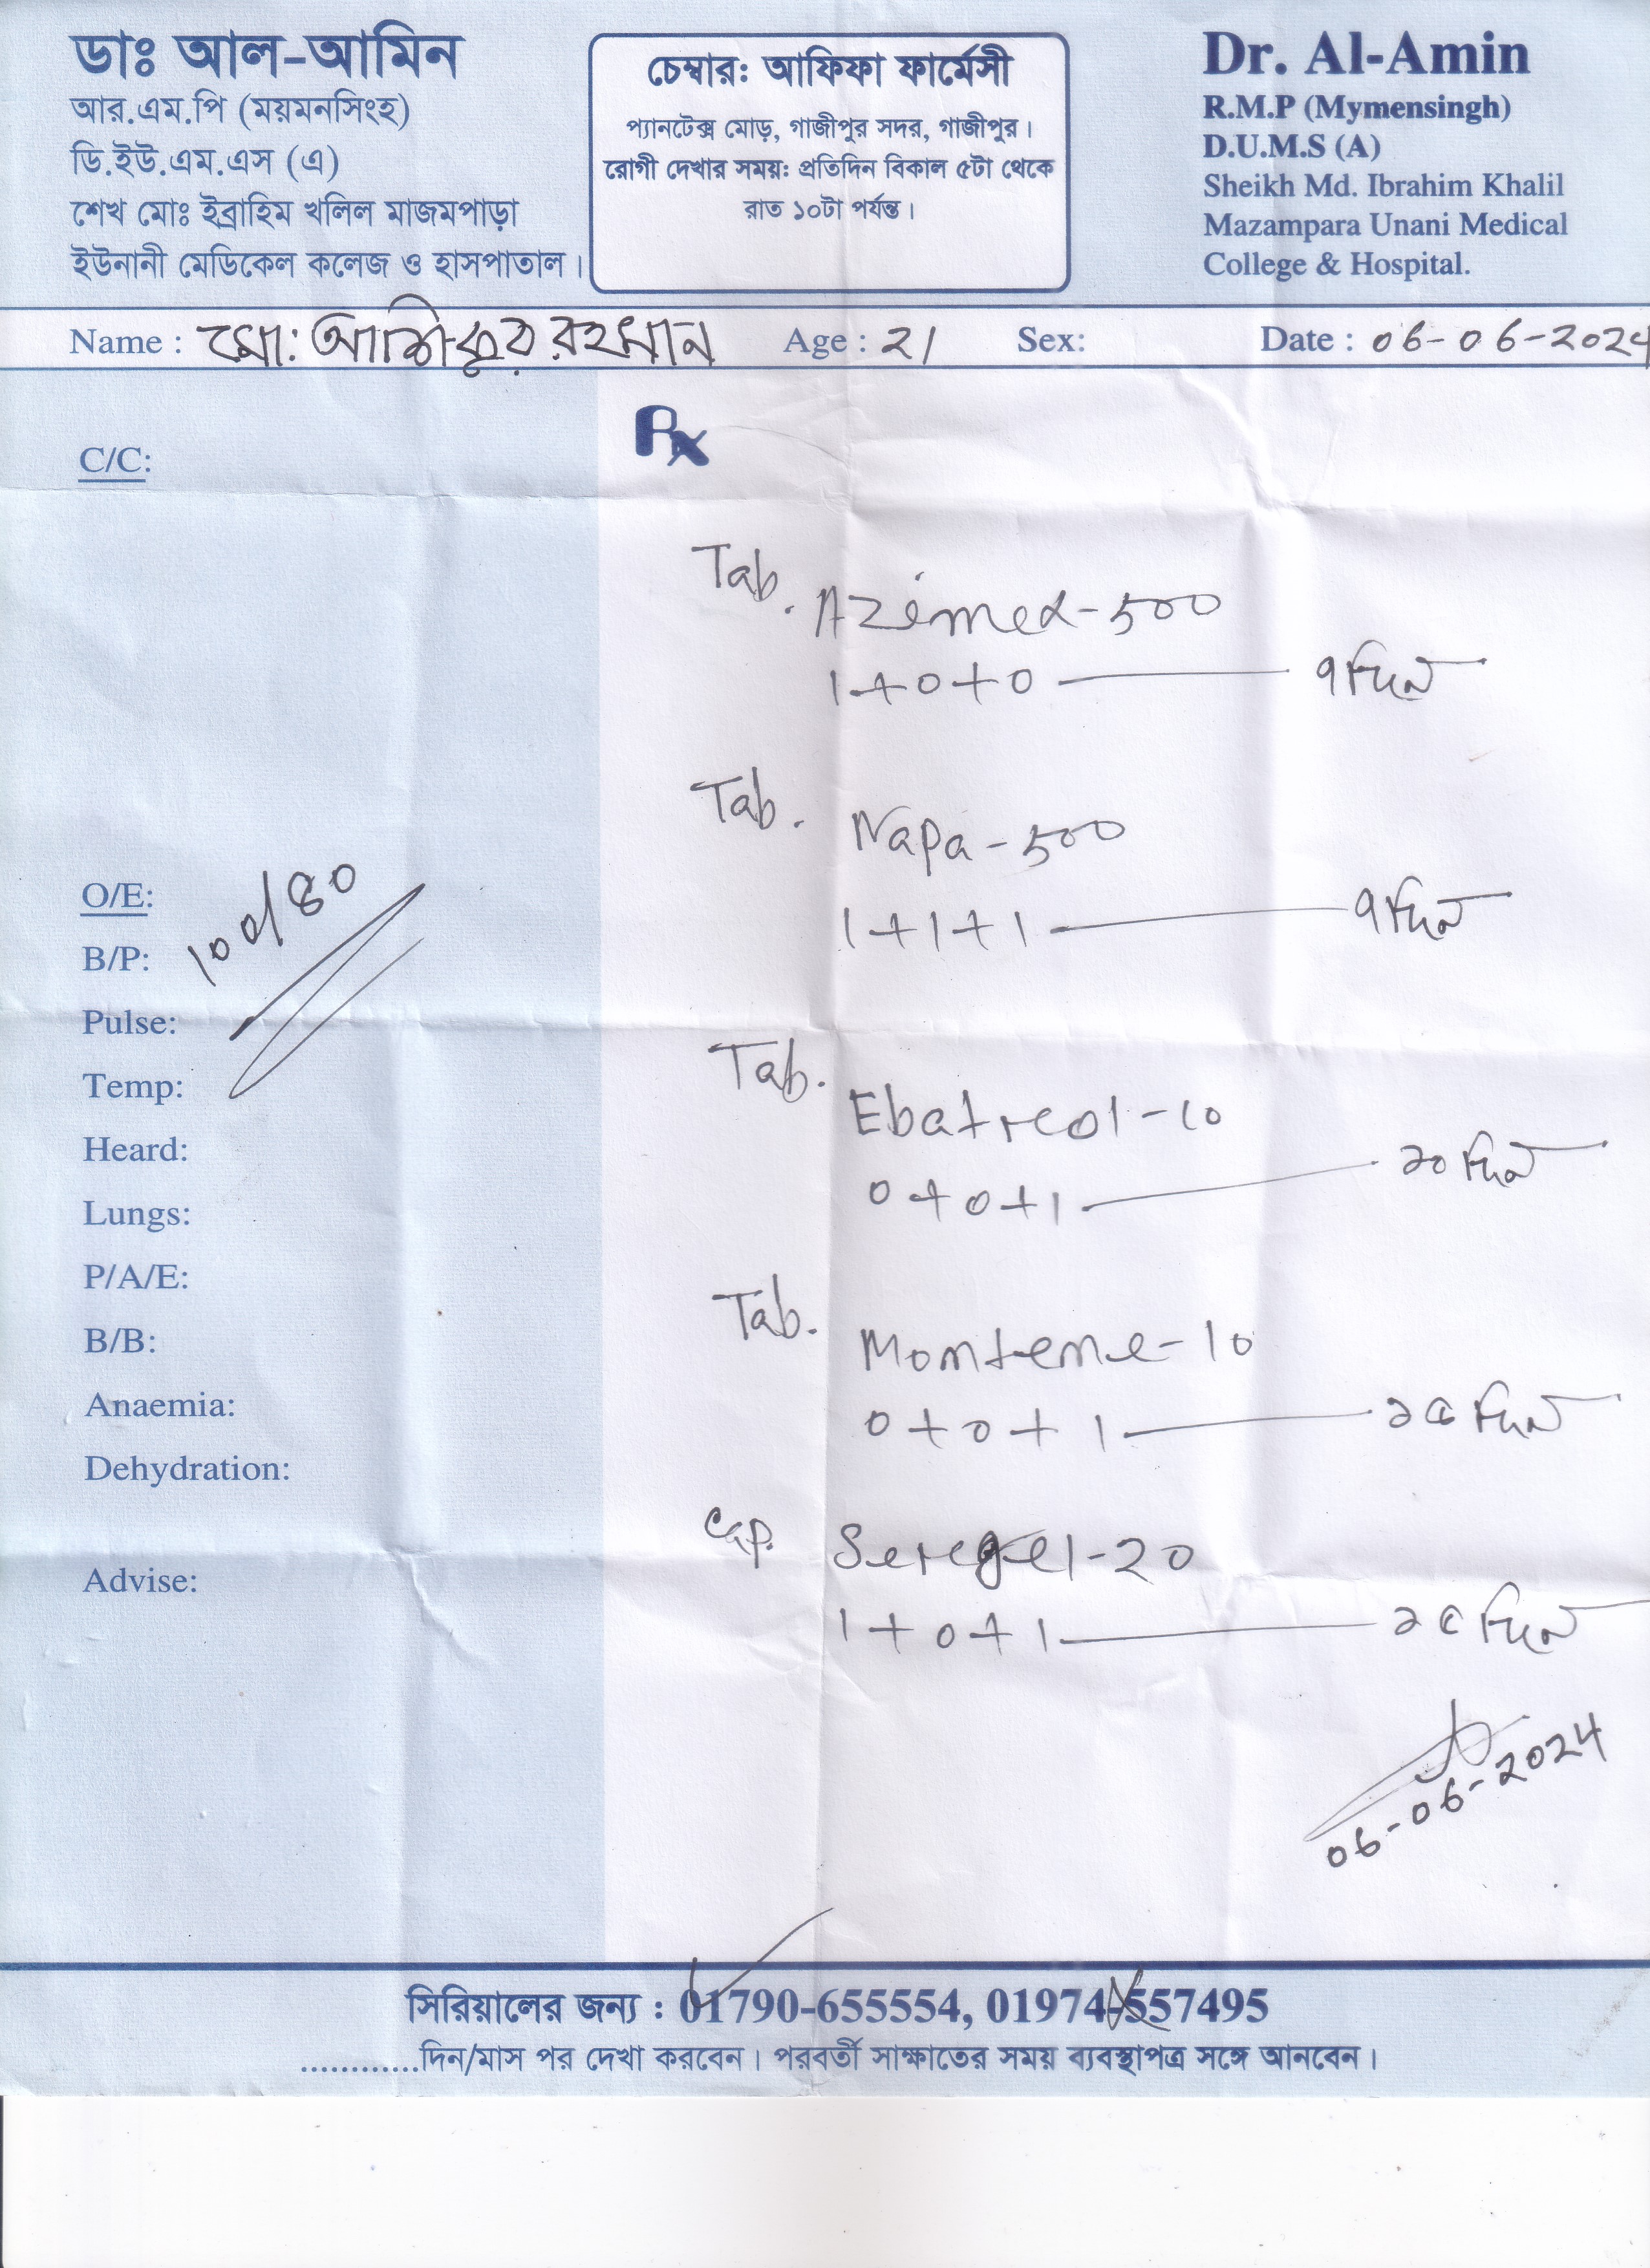 ডাঃ আল-আমিন
আর.এম.পি (ময়মনসিংহ)
ডি.ইউ.এম.এস (এ)
শেখ মোঃ ইব্রাহিম খলিল মাজমপাড়া
ইউনানী মেডিকেল কলেজ ও হাসপাতাল।
চেম্বার: আফিফা ফার্মেসী
প্যানটেক্স মোড়, গাজীপুর সদর, গাজীপুর।
রোগী দেখার সময়: প্রতিদিন বিকাল ৫টা থেকে
রাত ১০টা পর্যন্ত।
Dr. Al-Amin
R.M.P (Mymensingh)
D.U.M.S (A)
Sheikh Md. Ibrahim Khalil
Mazampara Unani Medical
College & Hospital.
Name : মো: আশিকুর রহমান Age : 21 Sex: Date : 06-06-2024
C/C:
O/E:
B/P: 100/80
Pulse:
Temp:
Heard:
Lungs:
P/A/E:
B/B:
Anaemia:
Dehydration:
Advise:
Rx
Tab. Azimed-500
1+0+0 — ৭ দিন
Tab. Napa-500
1+1+1 — ৭ দিন
Tab. Ebatreol-10
0+0+1 — ২০ দিন
Tab. Montene-10
0+0+1 — ২৫ দিন
Cap. Seregel-20
1+0+1 — ২৫ দিন
06-06-2024
সিরিয়ালের জন্য : 01790-655554, 01974-557495
............দিন/মাস পর দেখা করবেন। পরবর্তী সাক্ষাতের সময় ব্যবস্থাপত্র সঙ্গে আনবেন।